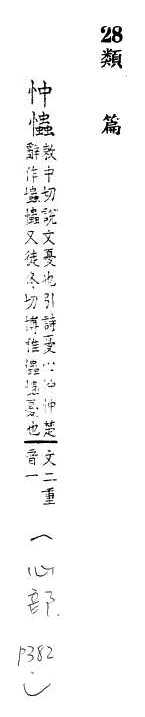 28類篇
忡𢥞敕中切說文憂也引詩憂心忡忡楚
辭作𢥞𢥞又徒冬切博雅𢥞𢥞憂也文二重
音一
（心部
P382
）